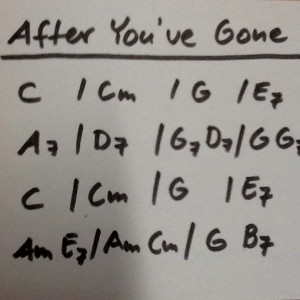 After You've Gone
C / Cm / G / E7
A7 / D7 / G7 D7 / G G7
C / Cm / G / E7
Am E7 / Am Cm / G B7